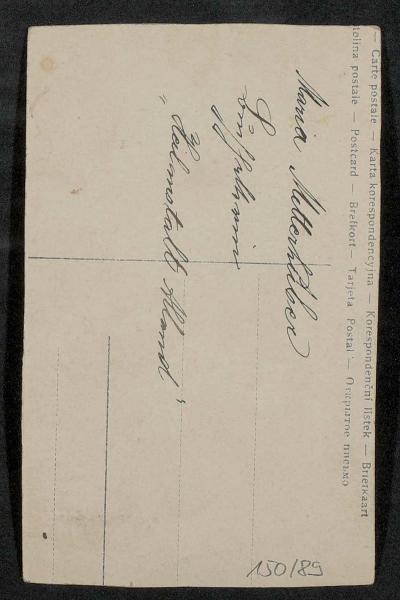 — Carte postale — Karta korespondencyjna — Korespondenční lístek — Briefkaart
tolina postale — Postcard — Brefkort — Tarjeta Postal — Открытое письмо
Maria Mitterhuber
Lungötzerin
"Heilanstalt Alland"
150/89